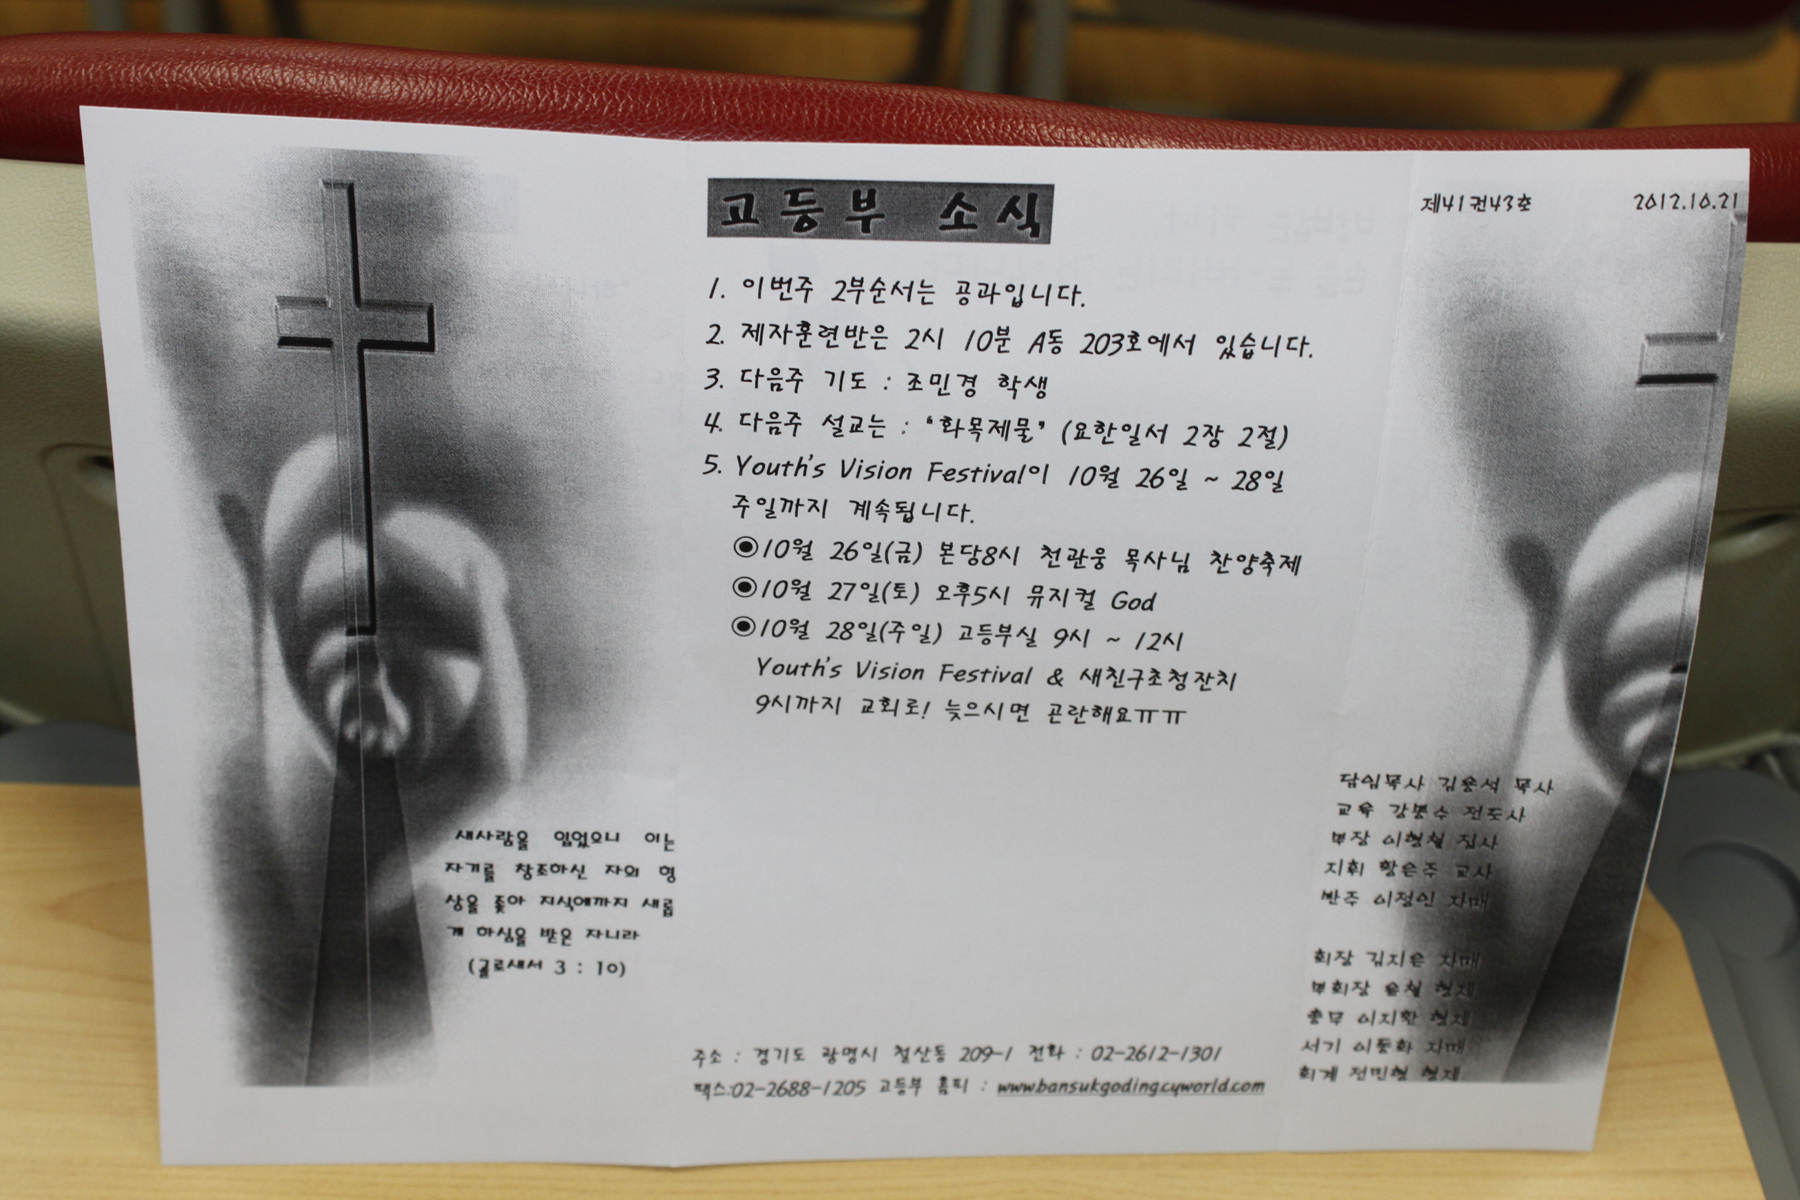 새사람을 입었으니 이는
자기를 창조하신 자의 형
상을 좇아 지식에까지 새롭
게 하심을 받은 자니라
(골로새서 3 : 10)
고등부 소식
1. 이번주 2부순서는 공과입니다.
2. 제자훈련반은 2시 10분 A동 203호에서 있습니다.
3. 다음주 기도 : 조민경 학생
4. 다음주 설교는 : "화목제물" (요한일서 2장 2절)
5. Youth's Vision Festival이 10월 26일 ~ 28일
주일까지 계속됩니다.
◉10월 26일(금) 본당8시 천관웅 목사님 찬양축제
◉10월 27일(토) 오후5시 뮤지컬 God
◉10월 28일(주일) 고등부실 9시 ~ 12시
Youth's Vision Festival & 새친구초청잔치
9시까지 교회로! 늦으시면 곤란해요ㅠㅠ
주소 : 경기도 광명시 철산동 209-1 전화 : 02-2612-1301
팩스:02-2688-1205 고등부 홈피 : www.bansukgoding.cyworld.com
제41권43호 2012.10.21
담임목사 김용석 목사
교육 강봉수 전도사
부장 이형철 집사
지휘 황은주 교사
반주 이정인 자매
회장 김지은 자매
부회장 윤철 형제
총무 이지환 형제
서기 이동화 자매
회계 전민형 형제